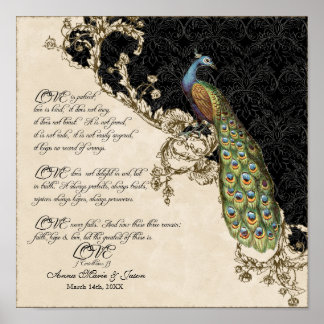 LOVE is patient,
love is kind, it does not envy,
it does not boast. It is not proud,
it is not rude, it is not easily angered,
it keeps no record of wrongs.
LOVE does not delight in evil but
in truth. It always protects, always trusts,
rejoices always hopes, always perseveres.
LOVE never fails. And now these three remain:
faith, hope & love, but the greatest of these is
LOVE
I Corinthians 13
Anna Marie & Jason
March 14th, 20XX